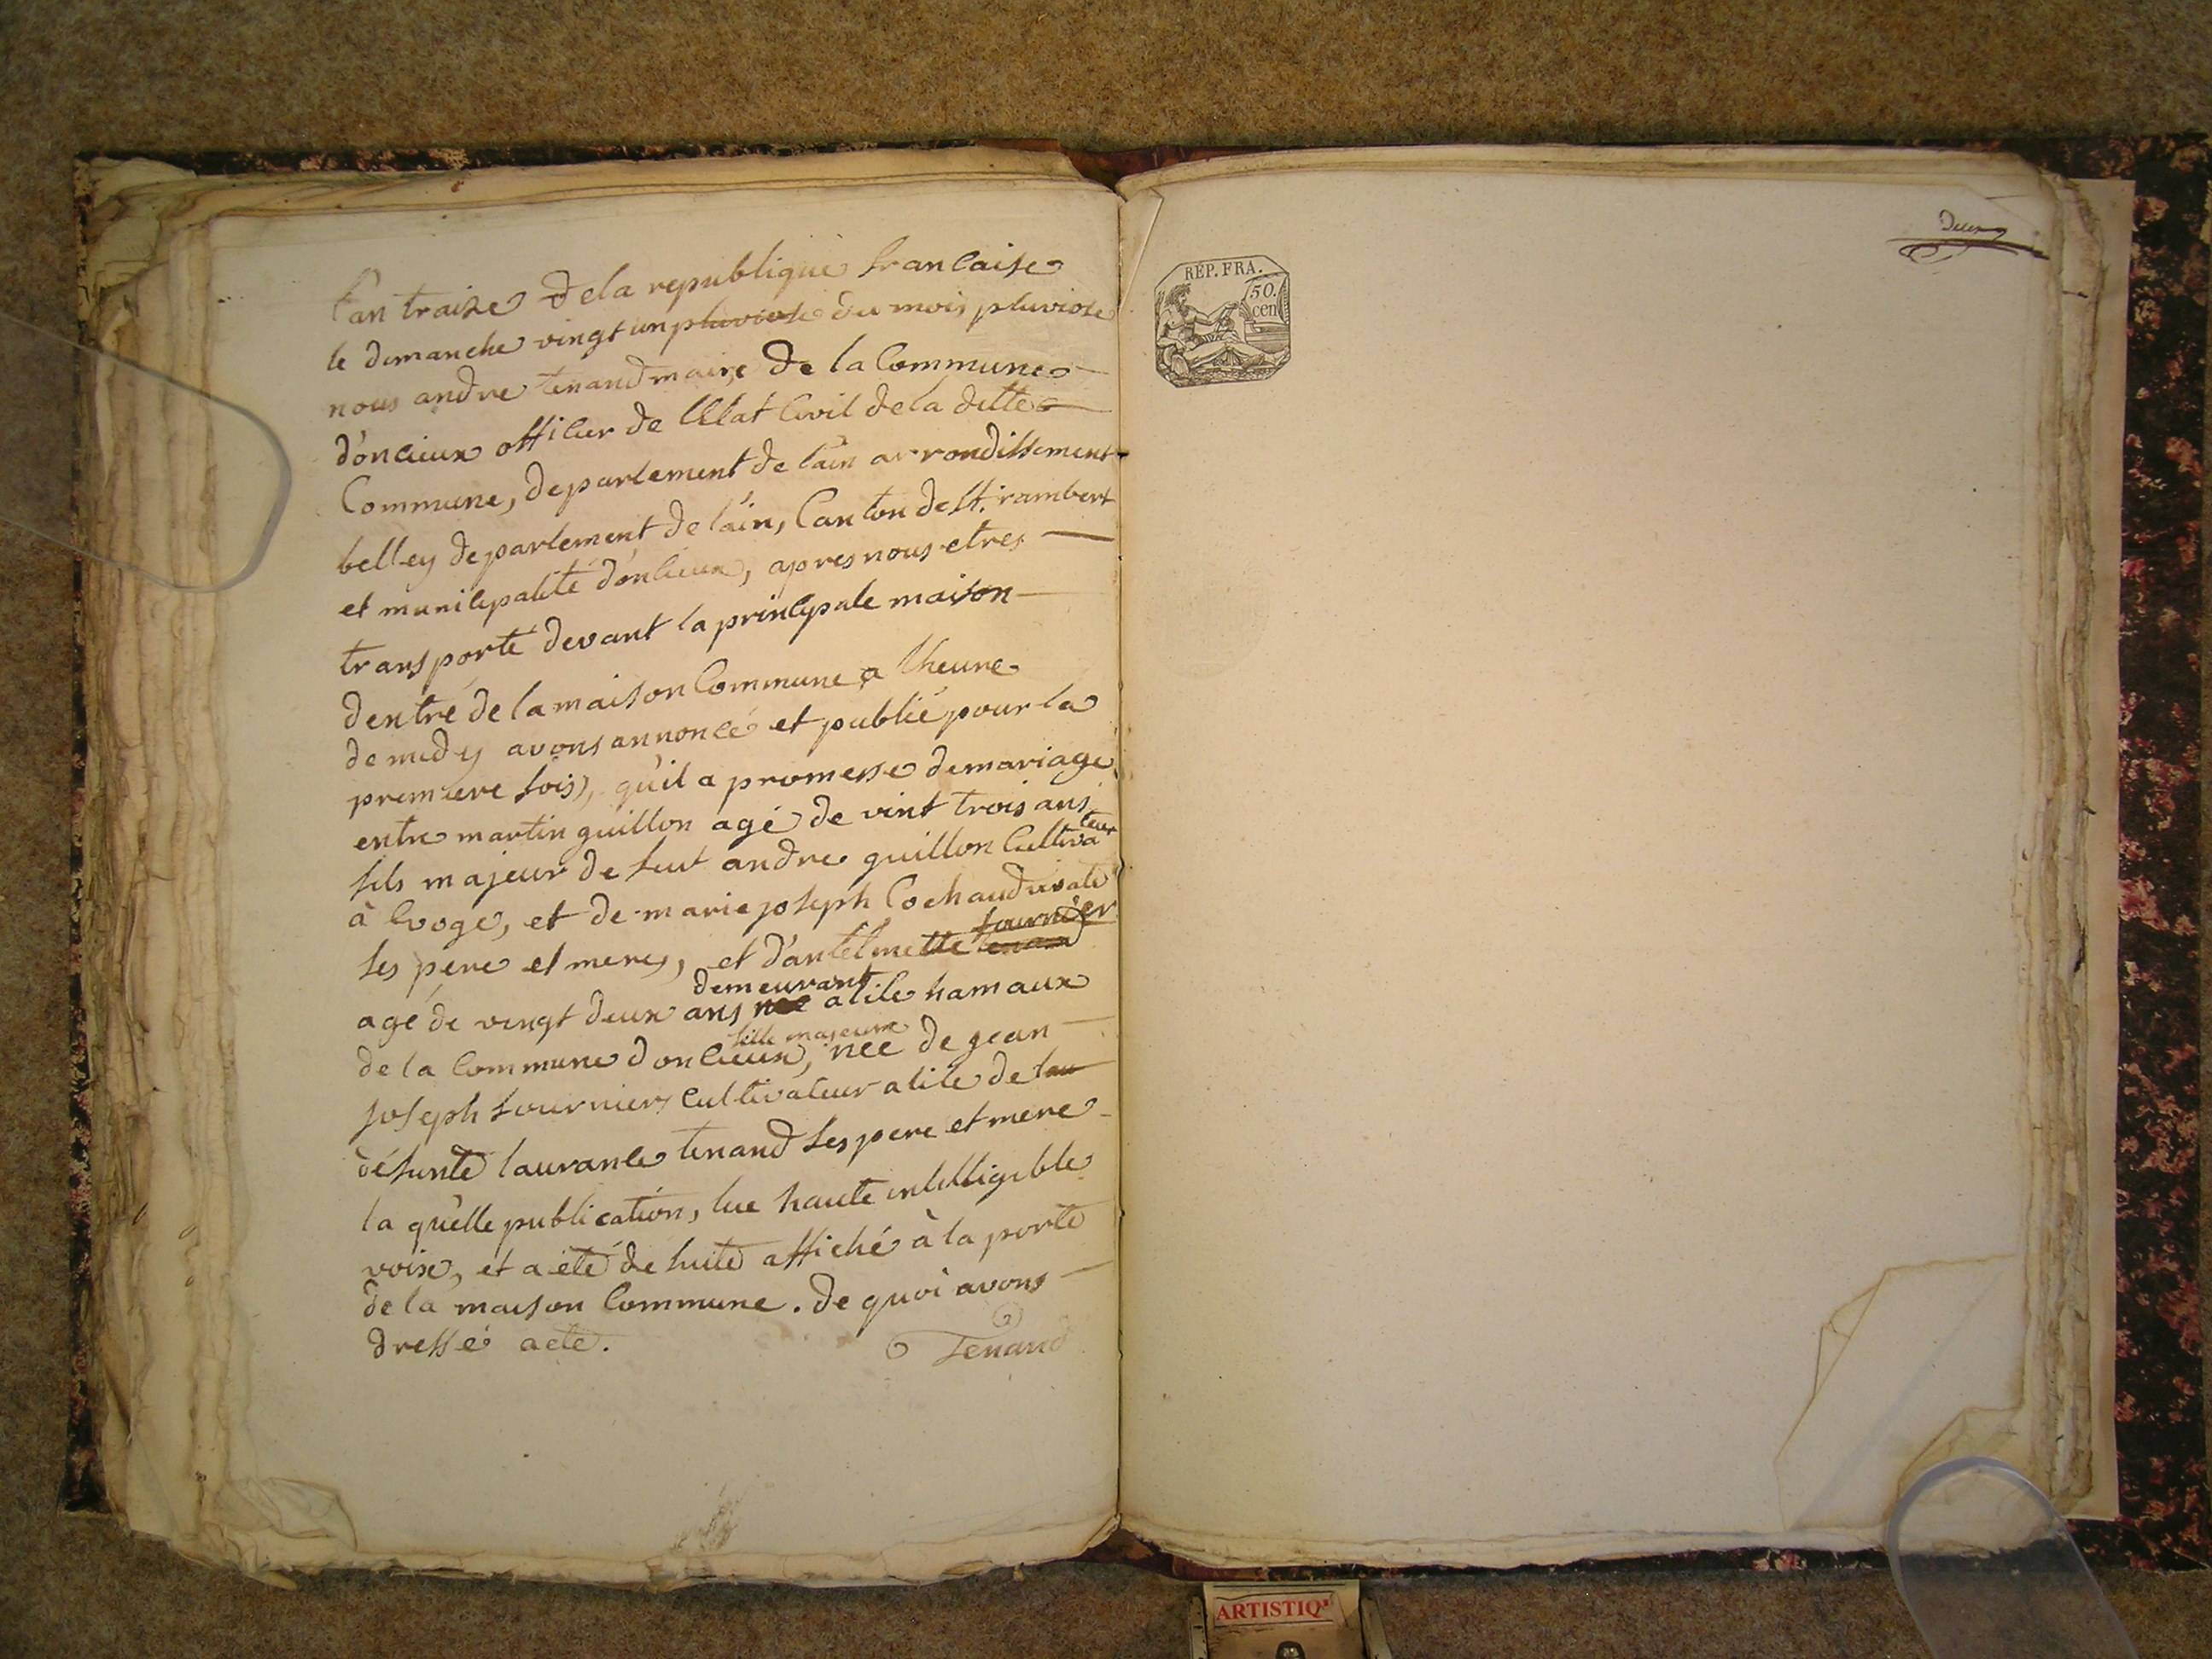 l'an traize de la republique francaise
le dimanche vingt un pluviose du mois pluviose
nous andre tenand maire de la Commune
d'oncieux officier de l'Etat Civil de la ditte
Commune, departement de l'ain arrondissement
belley departement de l'ain, Canton de st. rambert
et municipalité d'oncieux, apres nous etres
transporté devant la principale maison
dentré de la maison Commune a lheure
de midy avons annoncé et publié pour la
premiere fois, qu'il a promesse de mariage
entre martin guillon agé de vint trois ans
fils majeur de feut andre guillon Cultivateur
à Evoge, et de marie joseph Cochaud
ses pere et merey, et d'antelmette tenand fournier
agé de vingt deux ans née demeurant a lile hamaux
de la Commune doncieux, fille majeure née de jean
joseph fournier Cultivateur a lile de feu
défunte laurance tenand ses pere et mere
la quelle publication, lue haute intelligible
voix, et a été de suite affiché à la porte
de la maison Commune. de quoi avons
dressé acte.
Tenand
deux
RÉP. FRA.
50.
cen
ARTISTIQ